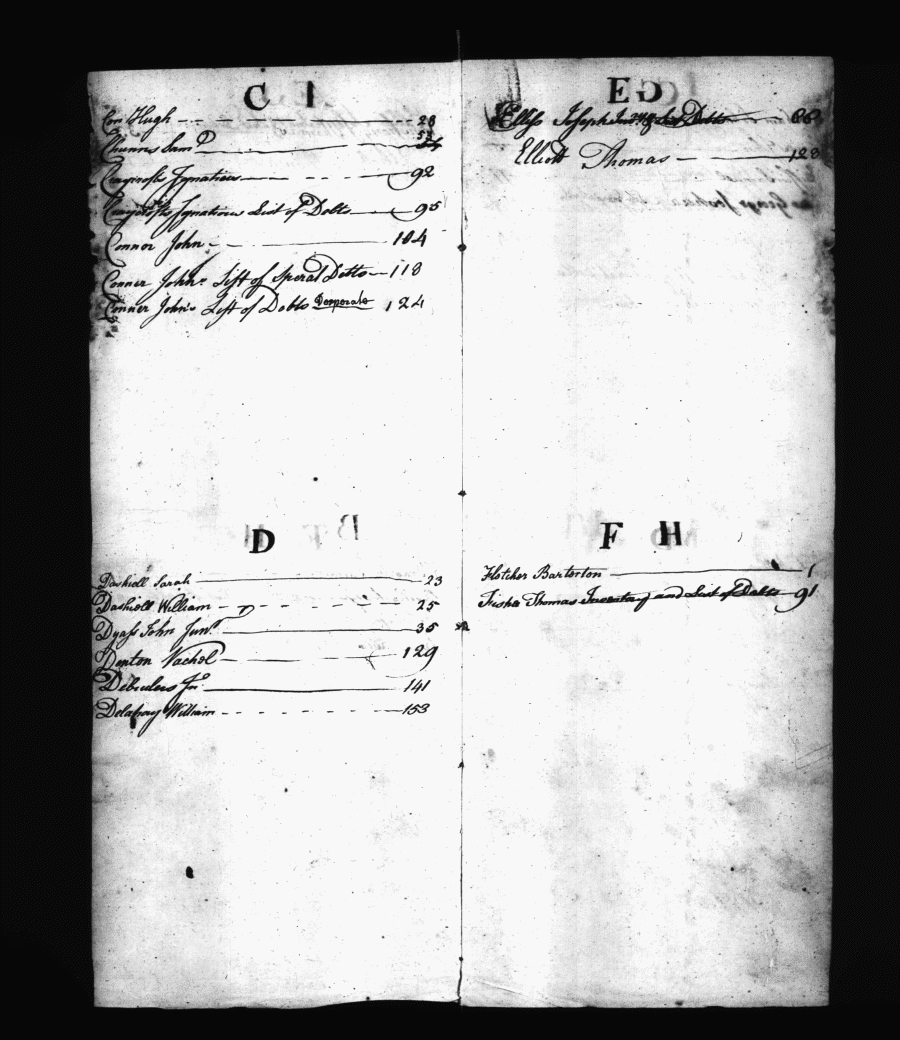 C I
Con Hugh 28
Chunn Saml 53
Ignatius 92
Ignatius List of Debts 95
Connor John 104
Conner John's List of Sperat Debts 118
Conner John's List of Debts Desperate 124
D
Dashiell Sarah 23
Dashiell William 25
Dyass John Junr 35
Denton Vachel 129
Debutts Jno 141
Delahay William 153
E G
Elless Joseph Debts
Elliott Thomas 128
F H
Fletcher Barterton 1
Fisher Thomas Inventory and List of Debts 91